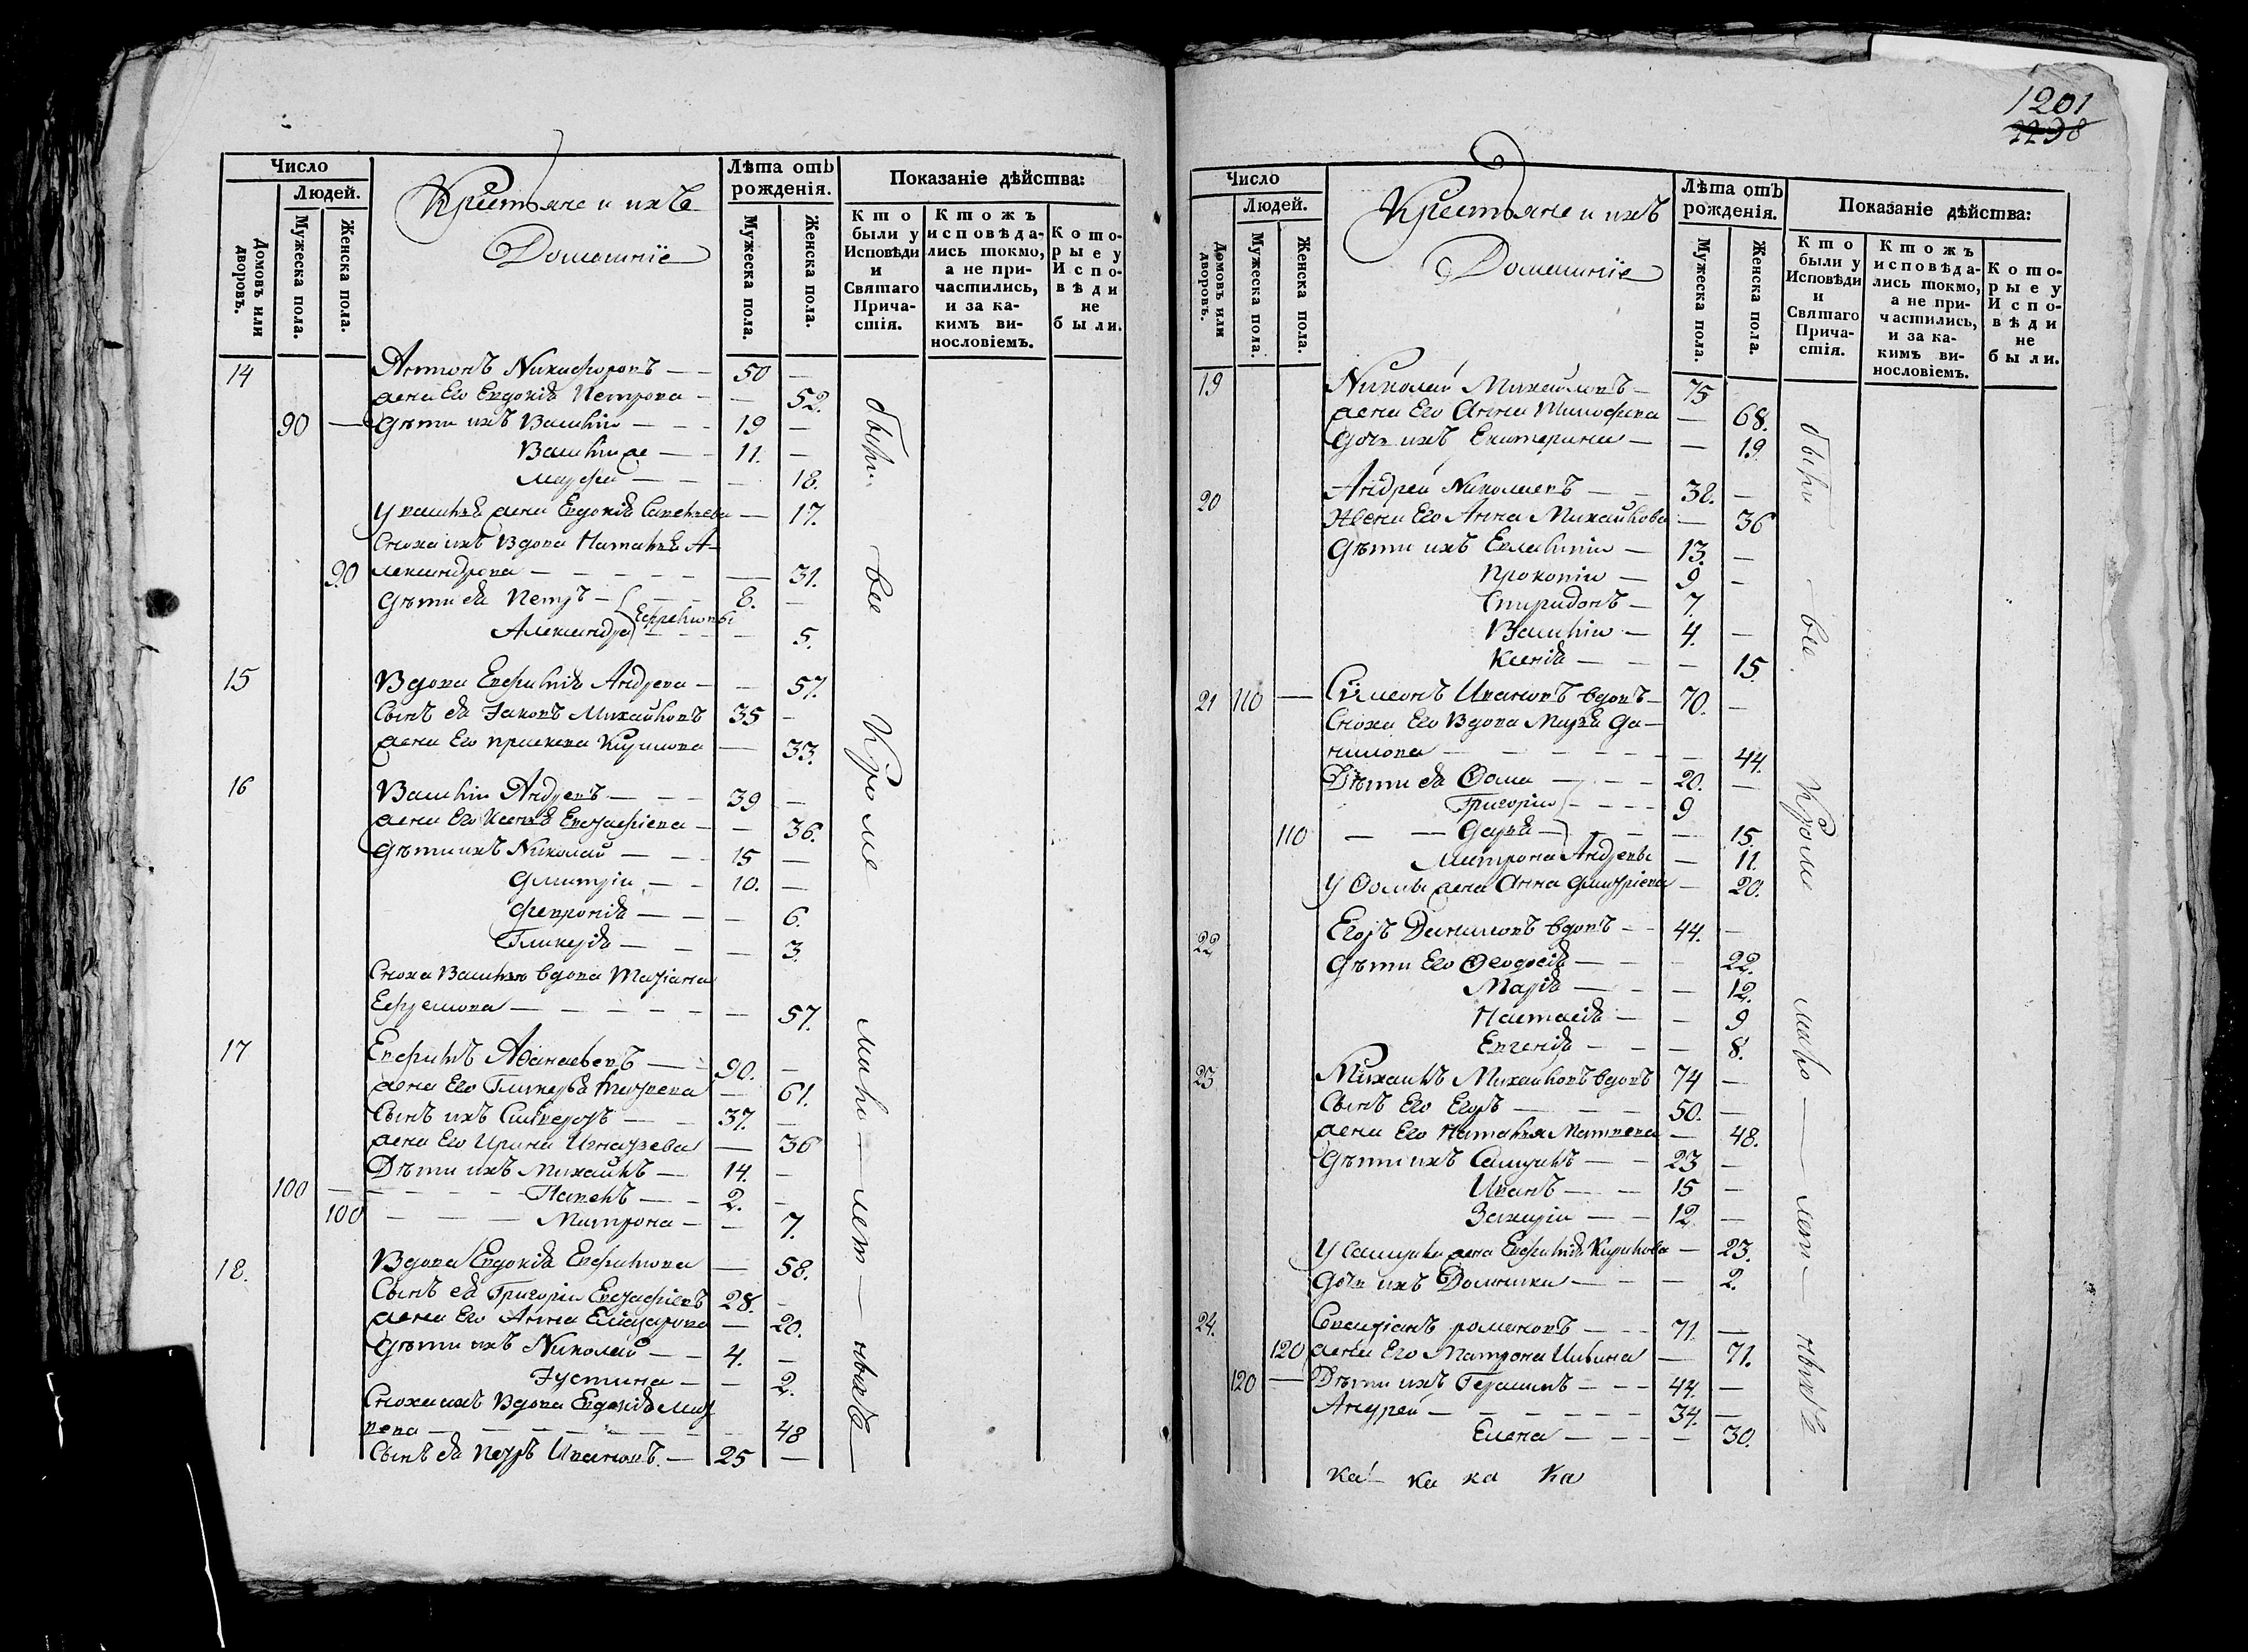 Число
Людей.
Домовъ или дворовъ.
Мужеска пола.
Женска пола.
Крестьяне и ихъ
Домашніе
Лѣта отъ рожденія.
Мужеска пола.
Женска пола.
Показаніе дѣйства:
Кто были у Исповѣди и Святаго Причастія.
Ктожъ исповѣдались токмо, а не причастились, и за какимъ винословіемъ.
Которые у Исповѣди не были.
14 Антонъ Никифоровъ — 50 —
жена Его Евдокія Петрова — — 52.
90 — Дѣти ихъ Василій — 19 —
Василій же — 11. —
Марфа — — 18.
У Василья жена Евдокія Савельева — 17.
Сноха ихъ Вдова Наталья А-
90 лександрова — — 31.
Дѣти ея Петръ — 8. —
Александра — Ефремовы — 5.
15 Вдова Евфимія Андреева — — 57.
Сынъ ея Іаковъ Михайловъ 35 —
жена Его Прасковья Кирилова — 33.
16 Василій Андреевъ — 39 —
жена Его Ксенія Евстафіева — — 36.
Дѣти ихъ Николай — 15 —
Дмитрій — 10. —
Феврония — — 6.
Гликерія — — 3.
Сноха Василью вдова Татіана
Ефремова — — 57.
17 Евфимъ Аѳанасьевъ — 90. —
жена Его Гликерья — 61.
Сынъ ихъ Сильвестръ — 37. —
жена Его Ирина Игнатьева — 36
Дѣти ихъ Михаилъ — 14. —
100 — Павелъ — 2. —
100 — Матрона — — 7.
18. Вдова Евдокія Евфимова — 58.
Сынъ ея Григорій Евстафіевъ 28. —
жена Его Анна Елизарова — 20.
Дѣти ихъ Николай — 4. —
Іустина — — 2.
Сноха ихъ Вдова Евдокія Мат
вева — — 48
Сынъ ея Петръ Ивановъ. — 25 —
были все Кроме мало лет ныхъ
1201
Число
Людей.
Домовъ или дворовъ.
Мужеска пола.
Женска пола.
Крестьяне и ихъ
Домашніе
Лѣта отъ рожденія.
Мужеска пола.
Женска пола.
Показаніе дѣйства:
Кто были у Исповѣди и Святаго Причастія.
Ктожъ исповѣдались токмо, а не причастились, и за какимъ винословіемъ.
Которые у Исповѣди не были.
19 Николай Михайловъ — 75
жена Его Анна Тимофеева — 68.
Дочь ихъ Екатерина — — 19
20 Андрей Николаевъ — 38. —
Жена Его Анна Михайлова — 36
Дѣти ихъ Евлампій — 13. —
Прокопій — 9 —
Спиридонъ — 7.
Василій — 4. —
Ксенія — — 15.
21 110 — Сімеонъ Ивановъ вдовъ — 70. —
Сноха Его Вдова Марья Да-
нилова — — 44.
Дѣти ея Ѳома — 20. —
Григорій — 9
110 — Дарья — — 15.
Матрона Андреевы — 11.
У Ѳомы жена Анна Дмитріева — 20.
22 Егоръ Даниловъ вдовъ — 44. —
Дѣти Его Ѳеодосія — 22.
Марія — — 12.
Настасія — — 9
Евгенія — — 8.
23 Михаилъ Михайловъ вдовъ 74 —
Сынъ Его Егоръ — 50. —
жена Его Наталья Матвеева — 48.
Дѣти ихъ Самуилъ — 23 —
Иванъ — 15 —
Захарій — 12 —
У Самуила жена Евфимія Кирилова — 23.
Дочь ихъ Домника — — 2.
24. Севастіанъ Романовъ — 71. —
120 жена Его Матрона Ильина — 71.
120 — Дѣти ихъ Герасимъ — 44. —
Андрей — 34. —
Елена — — 30.
ка ка ка ка
были все Кроме мало лет ныхъ